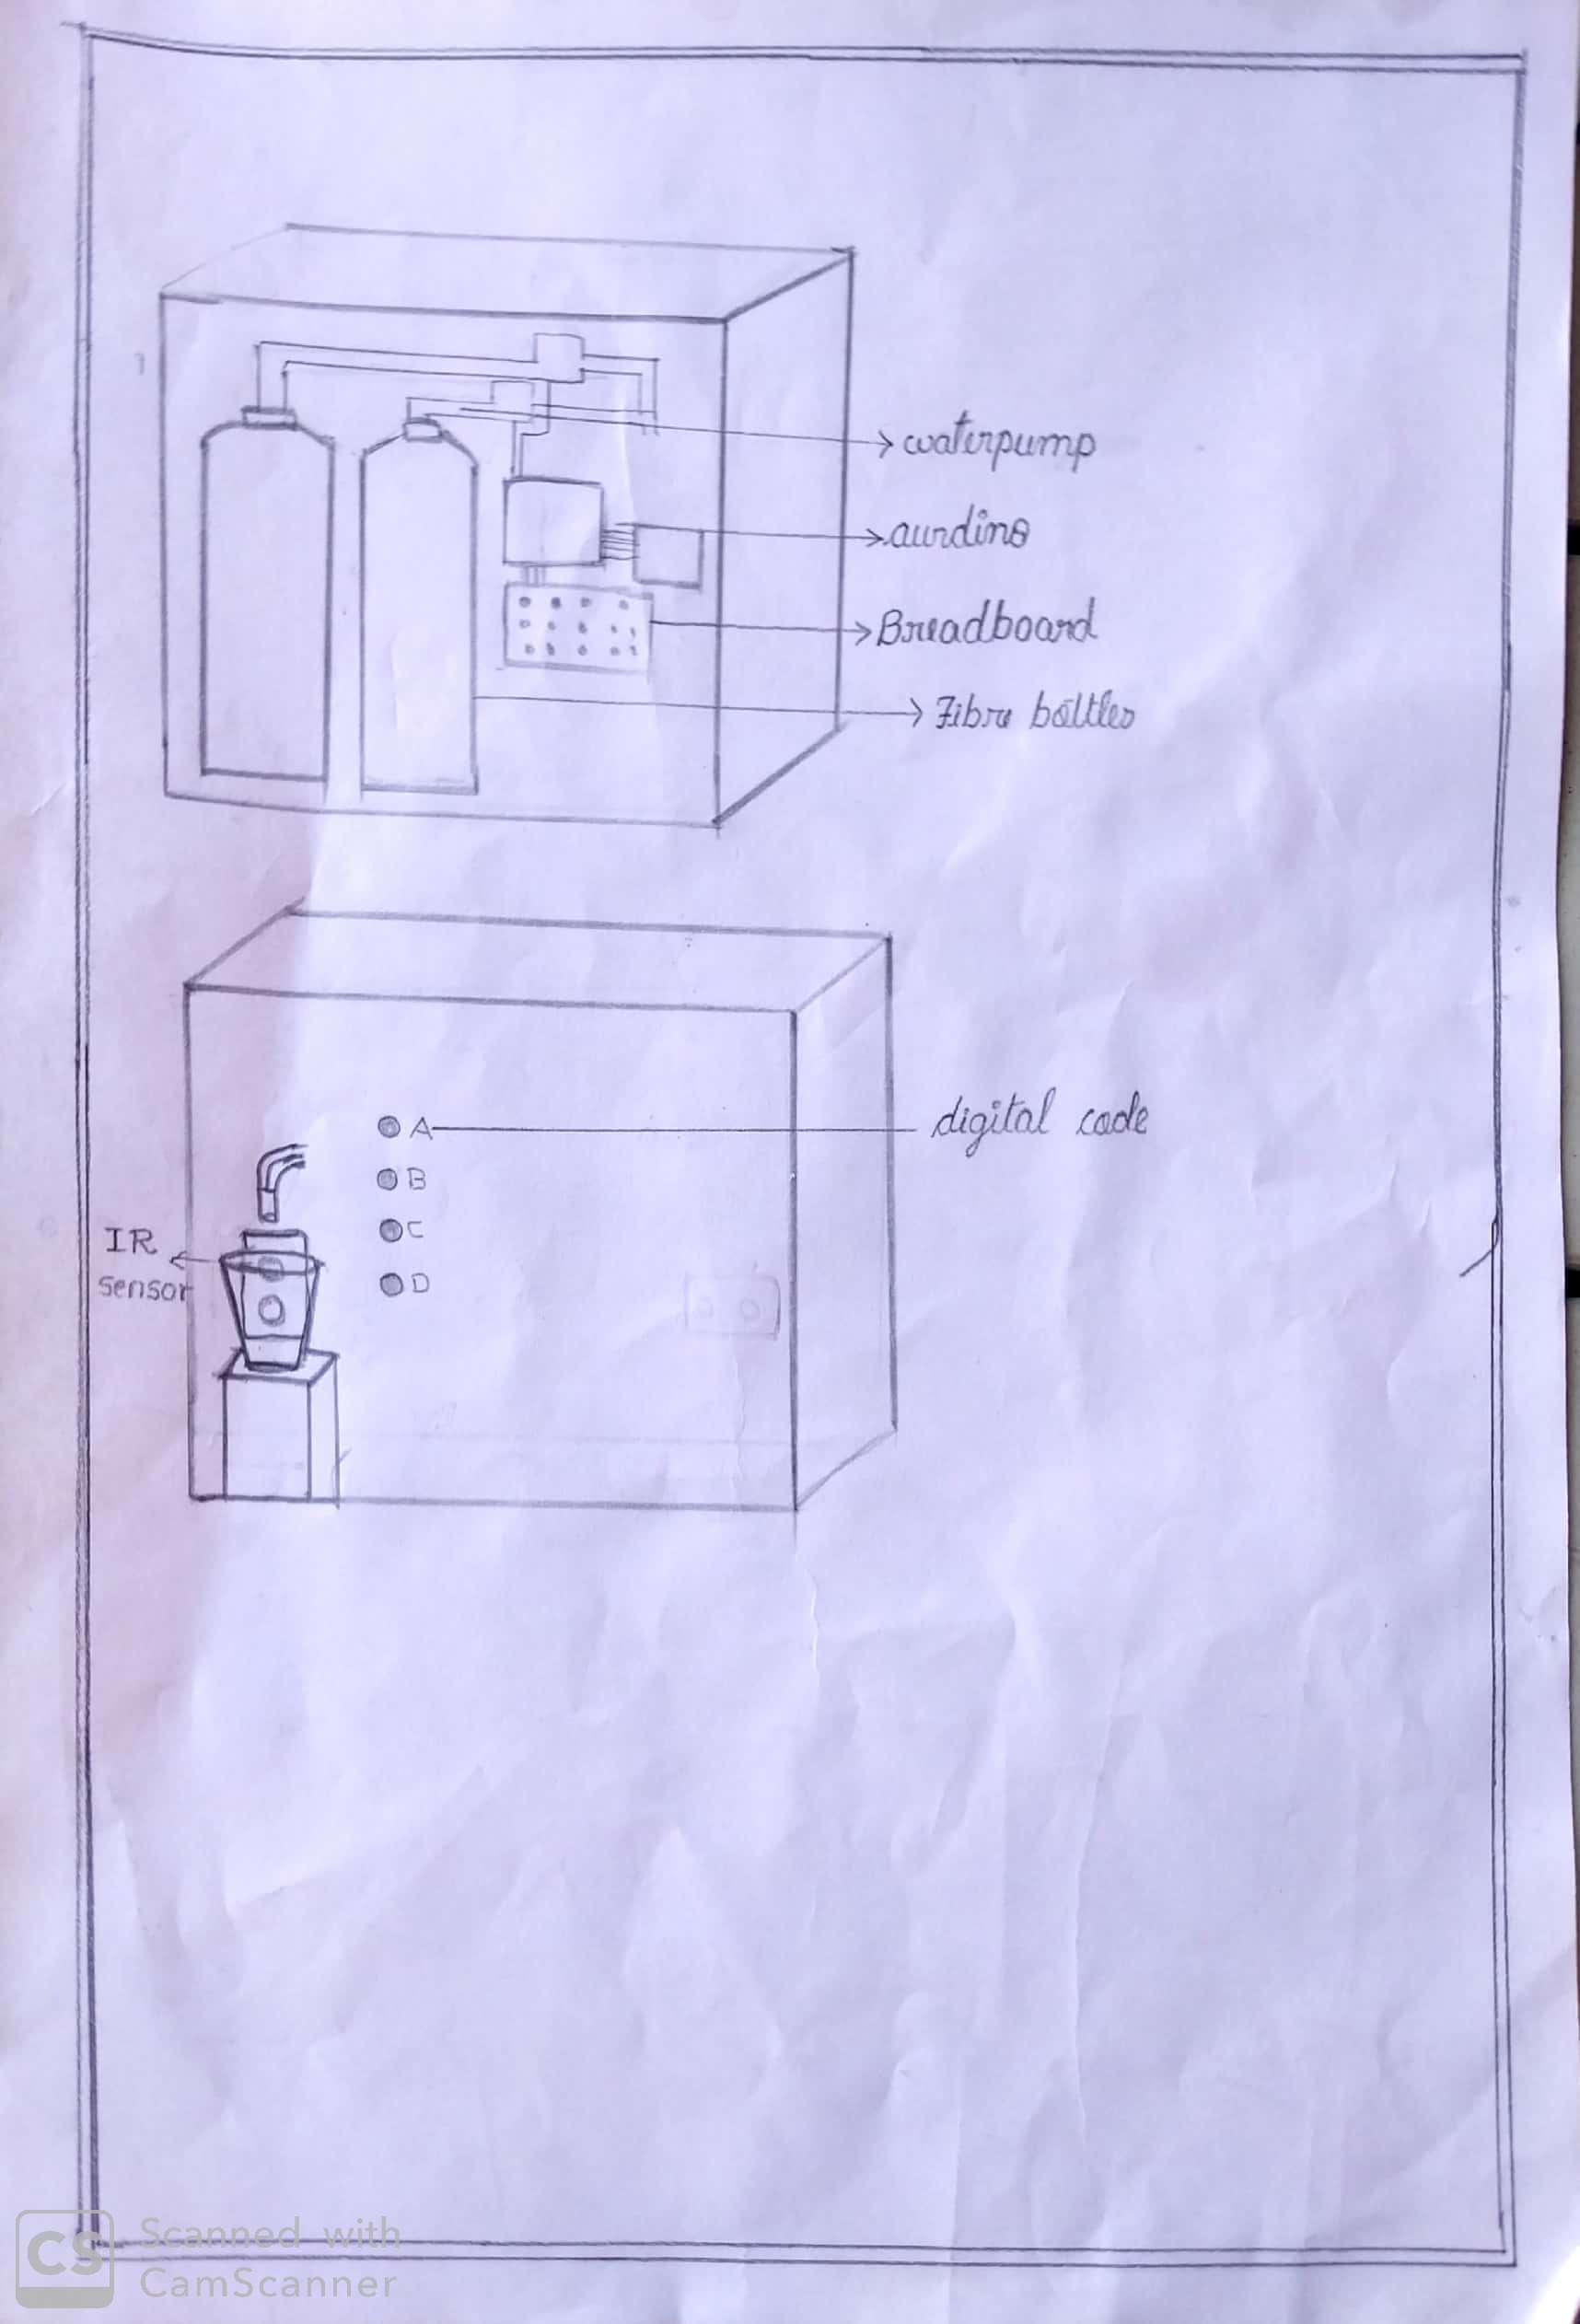 waterpump
aurdino
Breadboard
Fibre bottles
A
digital code
B
C
D
IR
sensor
CS
Scanned with
CamScanner